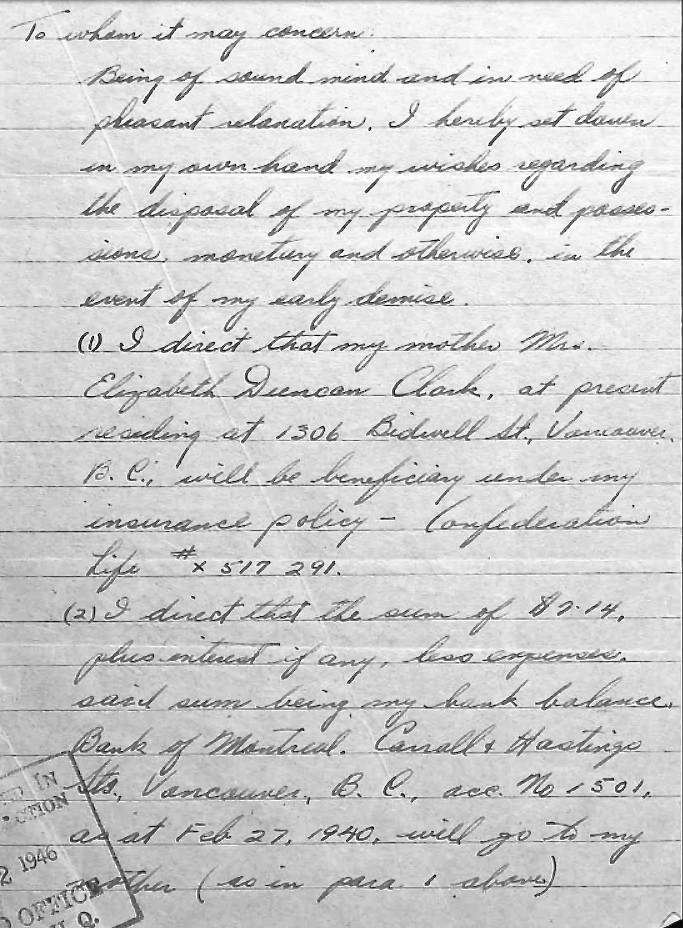 To whom it may concern:
Being of sound mind and in need of
pleasant relaxation, I hereby set down
in my own hand my wishes regarding
the disposal of my property and posses-
sions, monetary and otherwise, in the
event of my early demise.
(1) I direct that my mother Mrs.
Elizabeth Duncan Clark, at present
residing at 1306 Bidwell St., Vancouver,
B. C., will be beneficiary under my
insurance policy - Confederation
Life # x 517 291.
(2) I direct that the sum of $7.14,
plus interest if any, less expenses,
said sum being my bank balance,
Bank of Montreal, Carrall & Hastings
Sts., Vancouver, B. C., acc. No 1501,
as at Feb 27, 1940, will go to my
mother (as in para. 1 above)
ED IN
CTION
2 1946
D OFFICE
H. Q.